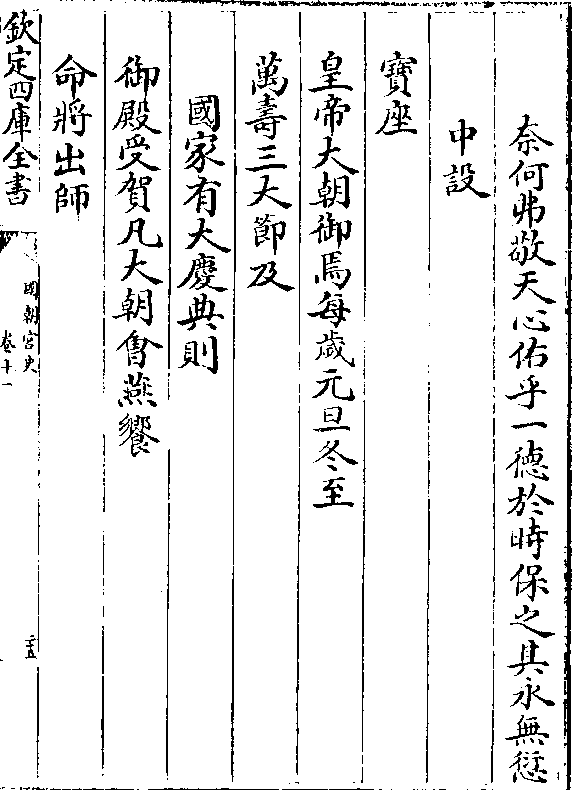 奈何弗敬天心佑乎一德於時保之其永無愆
中設
寶座
皇帝大朝御焉每歳元旦冬至
萬壽三大節及
國家有大慶典則
御殿受賀凡大朝會燕饗
命將出師
欽定四庫全書
國朝宮史
卷十一
二五